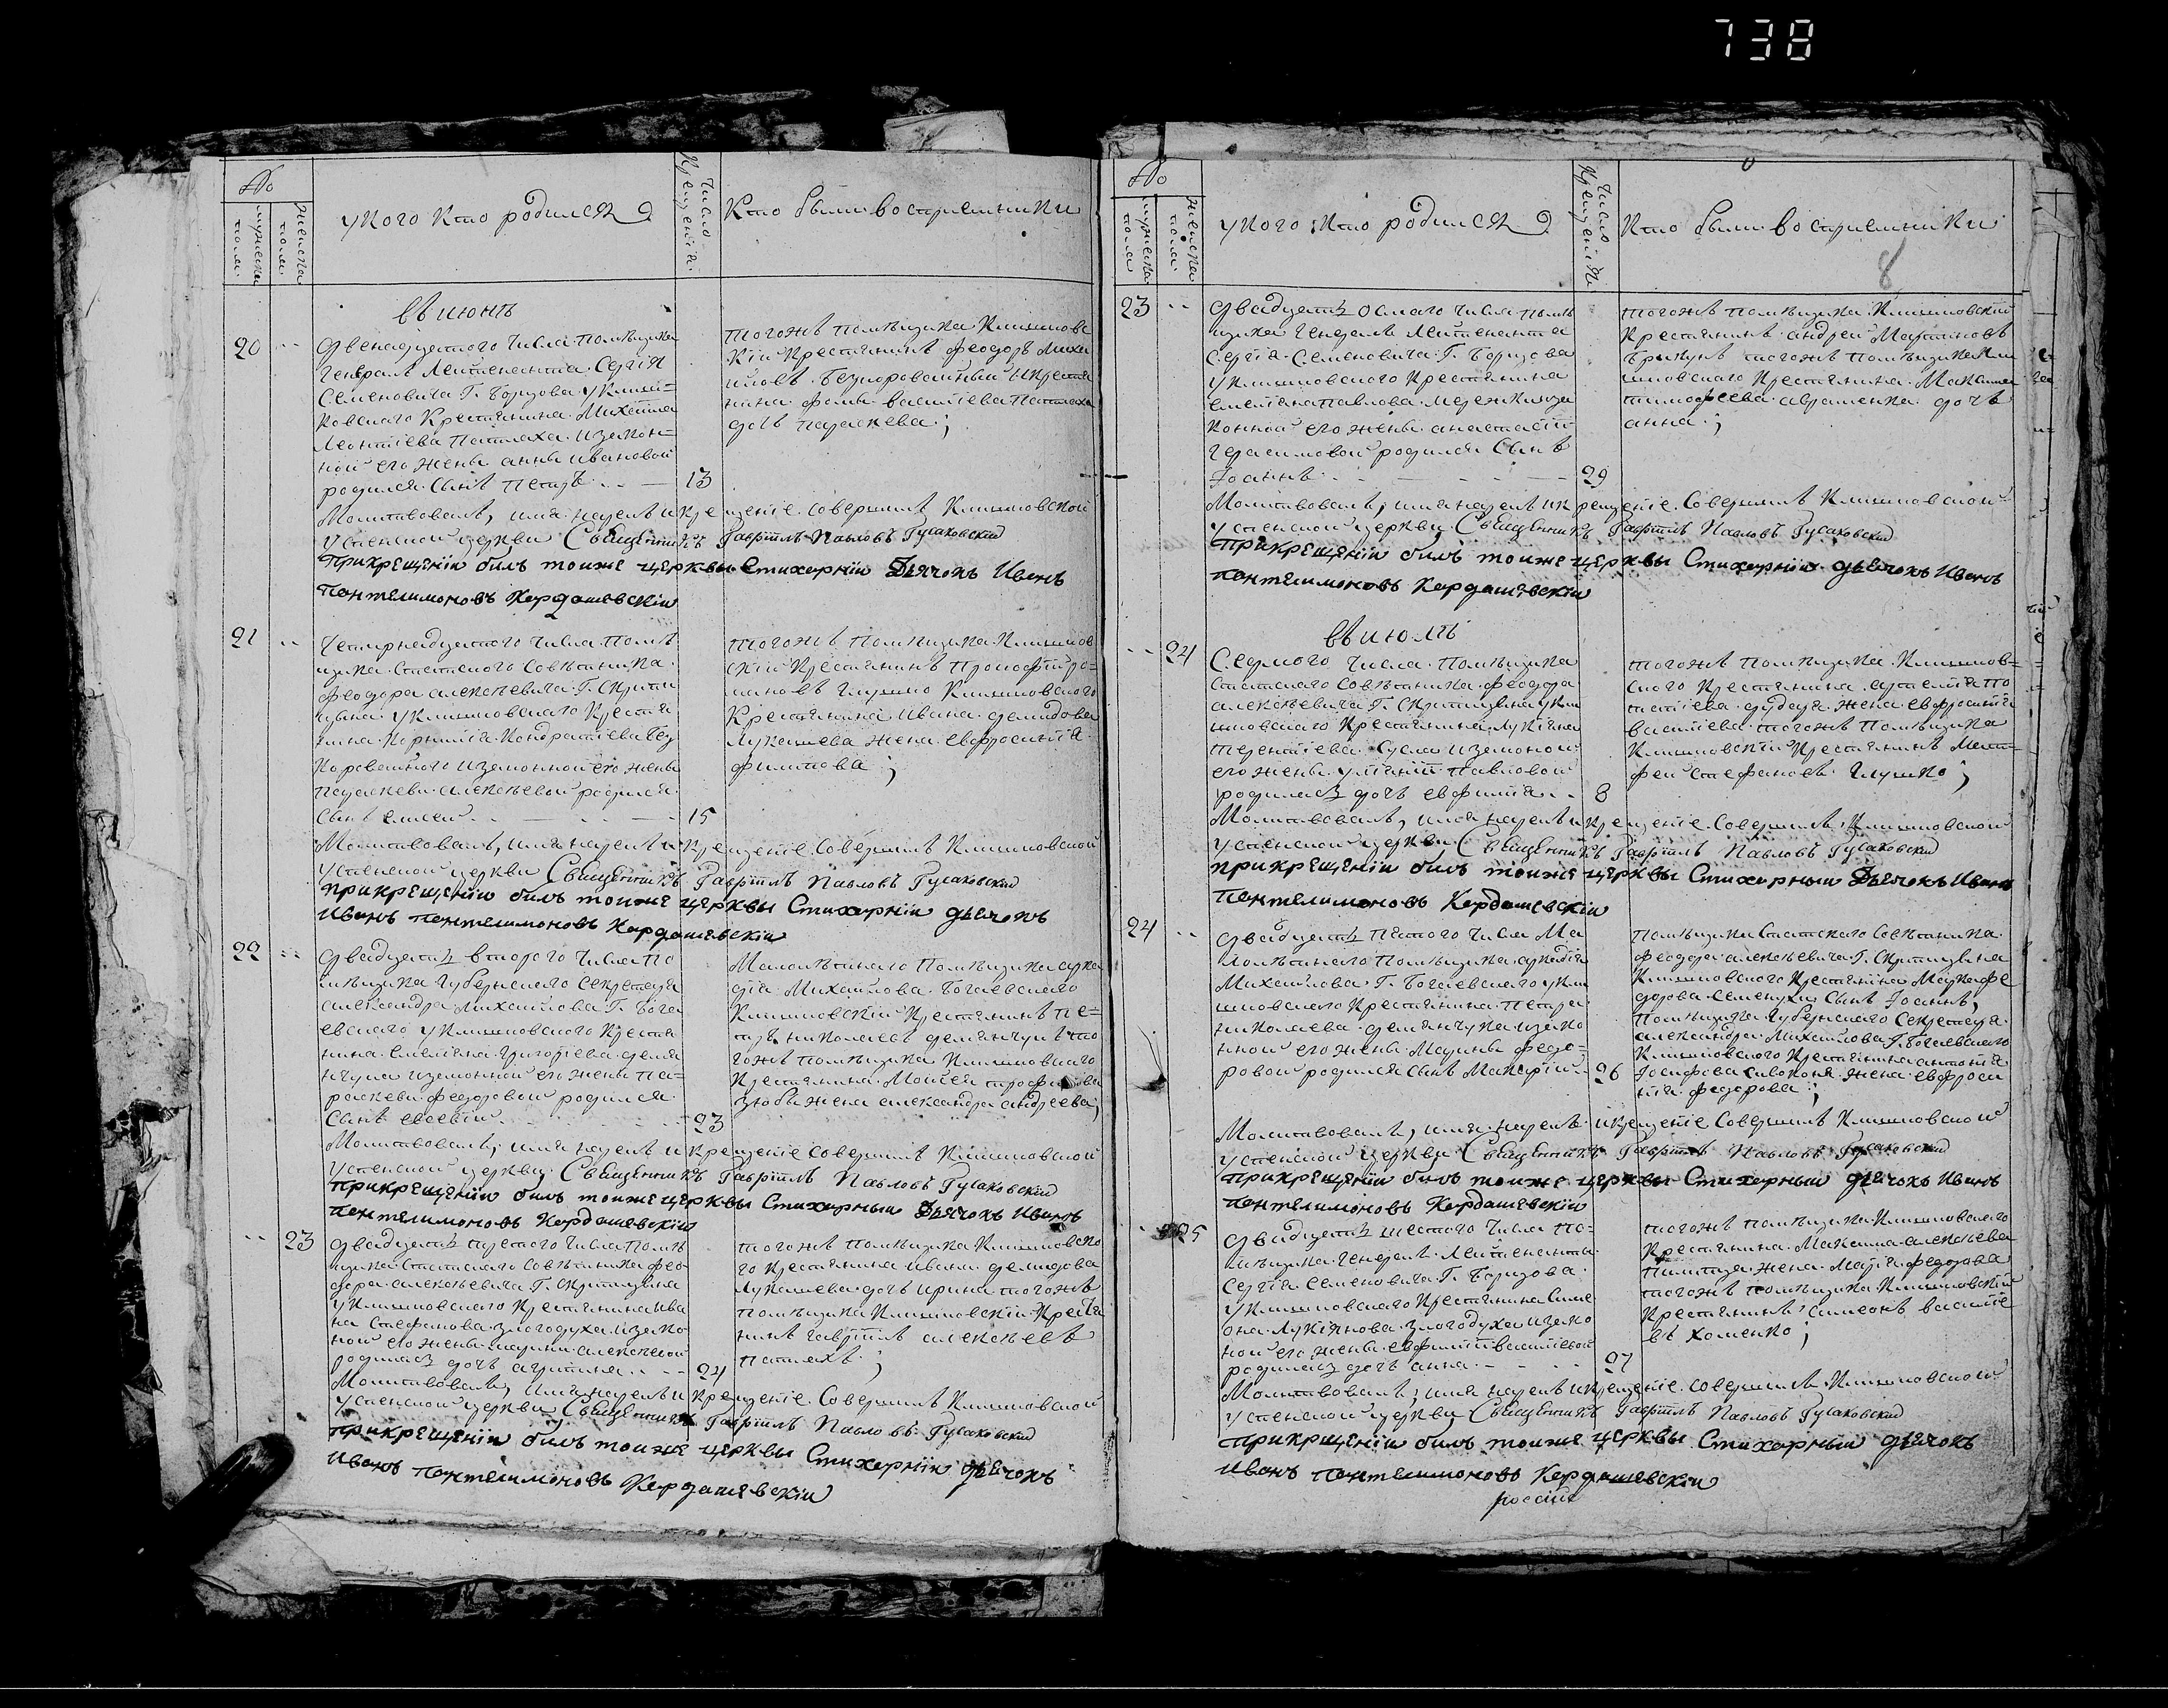 738
№
мужеска пола
женска пола
у кого кто родился
Число крещенія
Кто были восприемники
въ июнѣ
20
Двенадцетого числа помѣщика
Генерал Лейтенента Сергія
Семеновича Г. Борзова у Клиш=
ковского крестянина Михаила
Леонтіева Патлаха изакон=
ной его жены анны Ивановой
родился сынъ Петръ
13
тогожъ помѣщика Клишков
кіи крестянинъ феодоръ Миха
иловъ Безкоровайный и крестя
нина фомы василіева Патлаха
дочь параскева;
Молитвовалъ, имя нареклъ и крещеніе совершилъ Клишковской
успенской церкви Священникъ Гавріилъ Павловъ Гусаковский
При крещеніи билъ тоиже церквы Стихарніи Дьячокъ Иванъ
Пантелимоновъ Кардашевскіи
21
Четирнадцетого числа помѣ
щика статского совѣтника
феодора алексѣевича Г. Скрипи
цина у Клишковского крестя
нина Корнилія Кондратіева Без
коровайного изаконной его жены
параскеви алексѣевой родился
сынъ елисей
15
тогожъ помѣщика Клишков
скіи крестянинъ Прокофій ро=
мановъ Глушко Клишковского
крестянина Ивана демидова
Лукашева жена евфросинія
филипова;
Молитвовалъ, имя нареклъ и крещеніе совершилъ Клишковской
успенской церкви Священникъ Гавріилъ Павловъ Гусаковский
При крещеніи билъ тоиже церквы Стихарніи дьячокъ
Иванъ Пантелимоновъ Кардашевскіи
22
Двадцеть второго числа по
мѣщика Губернского Секретара
александра Михаилова Г. Бога
евского у Клишковского крестя
нина емеліяна григоріева демя
нчука изаконной его жены па=
раскеви федоровой родился
сынъ евсевіи
23
Малолѣтнаго помѣщика арка
дія Михаилова Богаевского
Клишковскіи крестянинъ Пе=
тръ николаевъ демянчукъ то
гожъ помѣщика Клишковского
крестянина Моисея трофимова
Зюбы жена александра андреева;
Молитвовалъ, имя нареклъ и крещеніе совершилъ Клишковской
успенской церкви Священникъ Гавріилъ Павловъ Гусаковский
При крещеніи билъ тоиже церквы Стихарный Дьячокъ Иванъ
Пантелимоновъ Кардашевскіи
23
Двадцеть третого числа помѣ
щика Статского Совѣтника фео
дора алексѣевича Г. Скрипицина
у Клишковского крестянина Ива
на Стефанова Злогодуха изако
ной его жены марины алексѣевой
родилась дочь агрипина
24
тогожъ помѣщика Клишковско
го крестянина ивана демидова
Лукашева дочь ирина тогожъ
помѣщика Клишковскіи крестя
нинъ гавріилъ алексѣевъ
патлахъ;
Молитвовалъ, имя нареклъ и крещеніе Совершилъ Клишковской
успенской церкви Священникъ Гавріилъ Павловъ Гусаковский
При крещеніи билъ тоиже церквы Стихарніи дьячокъ
Иванъ Пантелимоновъ Кардашевскіи
№
мужеска пола
женска пола
у кого кто родился
Число крещенія
Кто были восприемники
8
23
Двадцеть осмаго числа помѣ
щика Генерал Лейтенента
Сергія Семеновича Г. Борзова
у Клишковского крестянина
емеліяна павлова изе
конной его жены анастасіи
Герасимовой родился Сынъ
Іоаннъ
29
тогожъ помѣщика Клишковскіи
крестянинъ андрей Мартиновъ
тогожъ помѣщика Кли
шковского крестянина Максима
тимофеева авраменка дочь
анна;
Молитвовалъ, имя нареклъ и крещеніе Совершилъ Клишковской
успенской церкви Священникъ Гавріилъ Павловъ Гусаковский
При крещеніи билъ тоиже церквы Стихарніи дьячокъ Иванъ
Пантелимоновъ Кардашевскіи
въ июлѣ
24
Седмого числа помѣщика
статского совѣтника феодора
алексѣевича Г. Скрипицина у Кли
шковского крестянина Лукіяна
терентіева Сусла изаконой
его жены уліянії Павловой
родилась дочь евфимія
8
тогожъ помѣщика Клишков=
ского крестянина
жена евфросинія
василіева тогожъ помѣщика
Клишковскіи крестянинъ Мат=
фей стефановъ Глушко;
Молитвовалъ, имя нареклъ и крещеніе Совершилъ Клишковской
успенской церкви Священникъ Гавріилъ Павловъ Гусаковский
При крещеніи билъ тоиже церквы Стихарныи Дьячокъ Иванъ
Пантелимоновъ Кардашевскіи
24
Двадцеть Пятого числа Ма
лолѣтнаго помѣщика аркадія
Михаилова Г. Богаевского у Кли
шковского крестянина Петра
николаева демянчука изако
нной его жены Марины федо=
ровой родился сынъ Макарій
26
помѣщика Статского Совѣтника
феодора алексѣевича Г. Скрипицина
Клишковского крестянина Марка фе
дорова Семенухи Сынъ Іоаннъ,
помѣщика Губернского Секретара
александра Михаилова Г. Богаевского
Клишковского крестянина антонія
Іосифова Сивоконя жена евфроси
нія федорова;
Молитвовалъ, имя нареклъ и крещеніе Совершилъ Клишковской
успенской церкви Священникъ Гавріилъ Павловъ Гусаковский
При крещеніи билъ тоиже церквы Стихарный дьячокъ Иванъ
Пантелимоновъ Кардашевскіи
25
Двадцеть шестого числа по=
мѣщика генерал Лейтенента
Сергія Семеновича Г. Борзова
у Клишковского крестянина Симе
она Лукіянова Злогодуха изако
ной его жены евфиміи василіевой
родилась дочь анна
27
тогожъ помѣщика Клишковского
крестянина Максима алексѣева
жена Марія федорова
тогожъ помѣщика Клишковскіи
крестянинъ Симеонъ василіе
въ хоменко;
Молитвовалъ, имя нареклъ и крещеніе совершилъ Клишковской
успенской церкви Священникъ Гавріилъ Павловъ Гусаковский
При крщеніи билъ тоиже церквы Стихарныи дьячокъ
Иванъ Пантелимоновъ Кардашевскіи